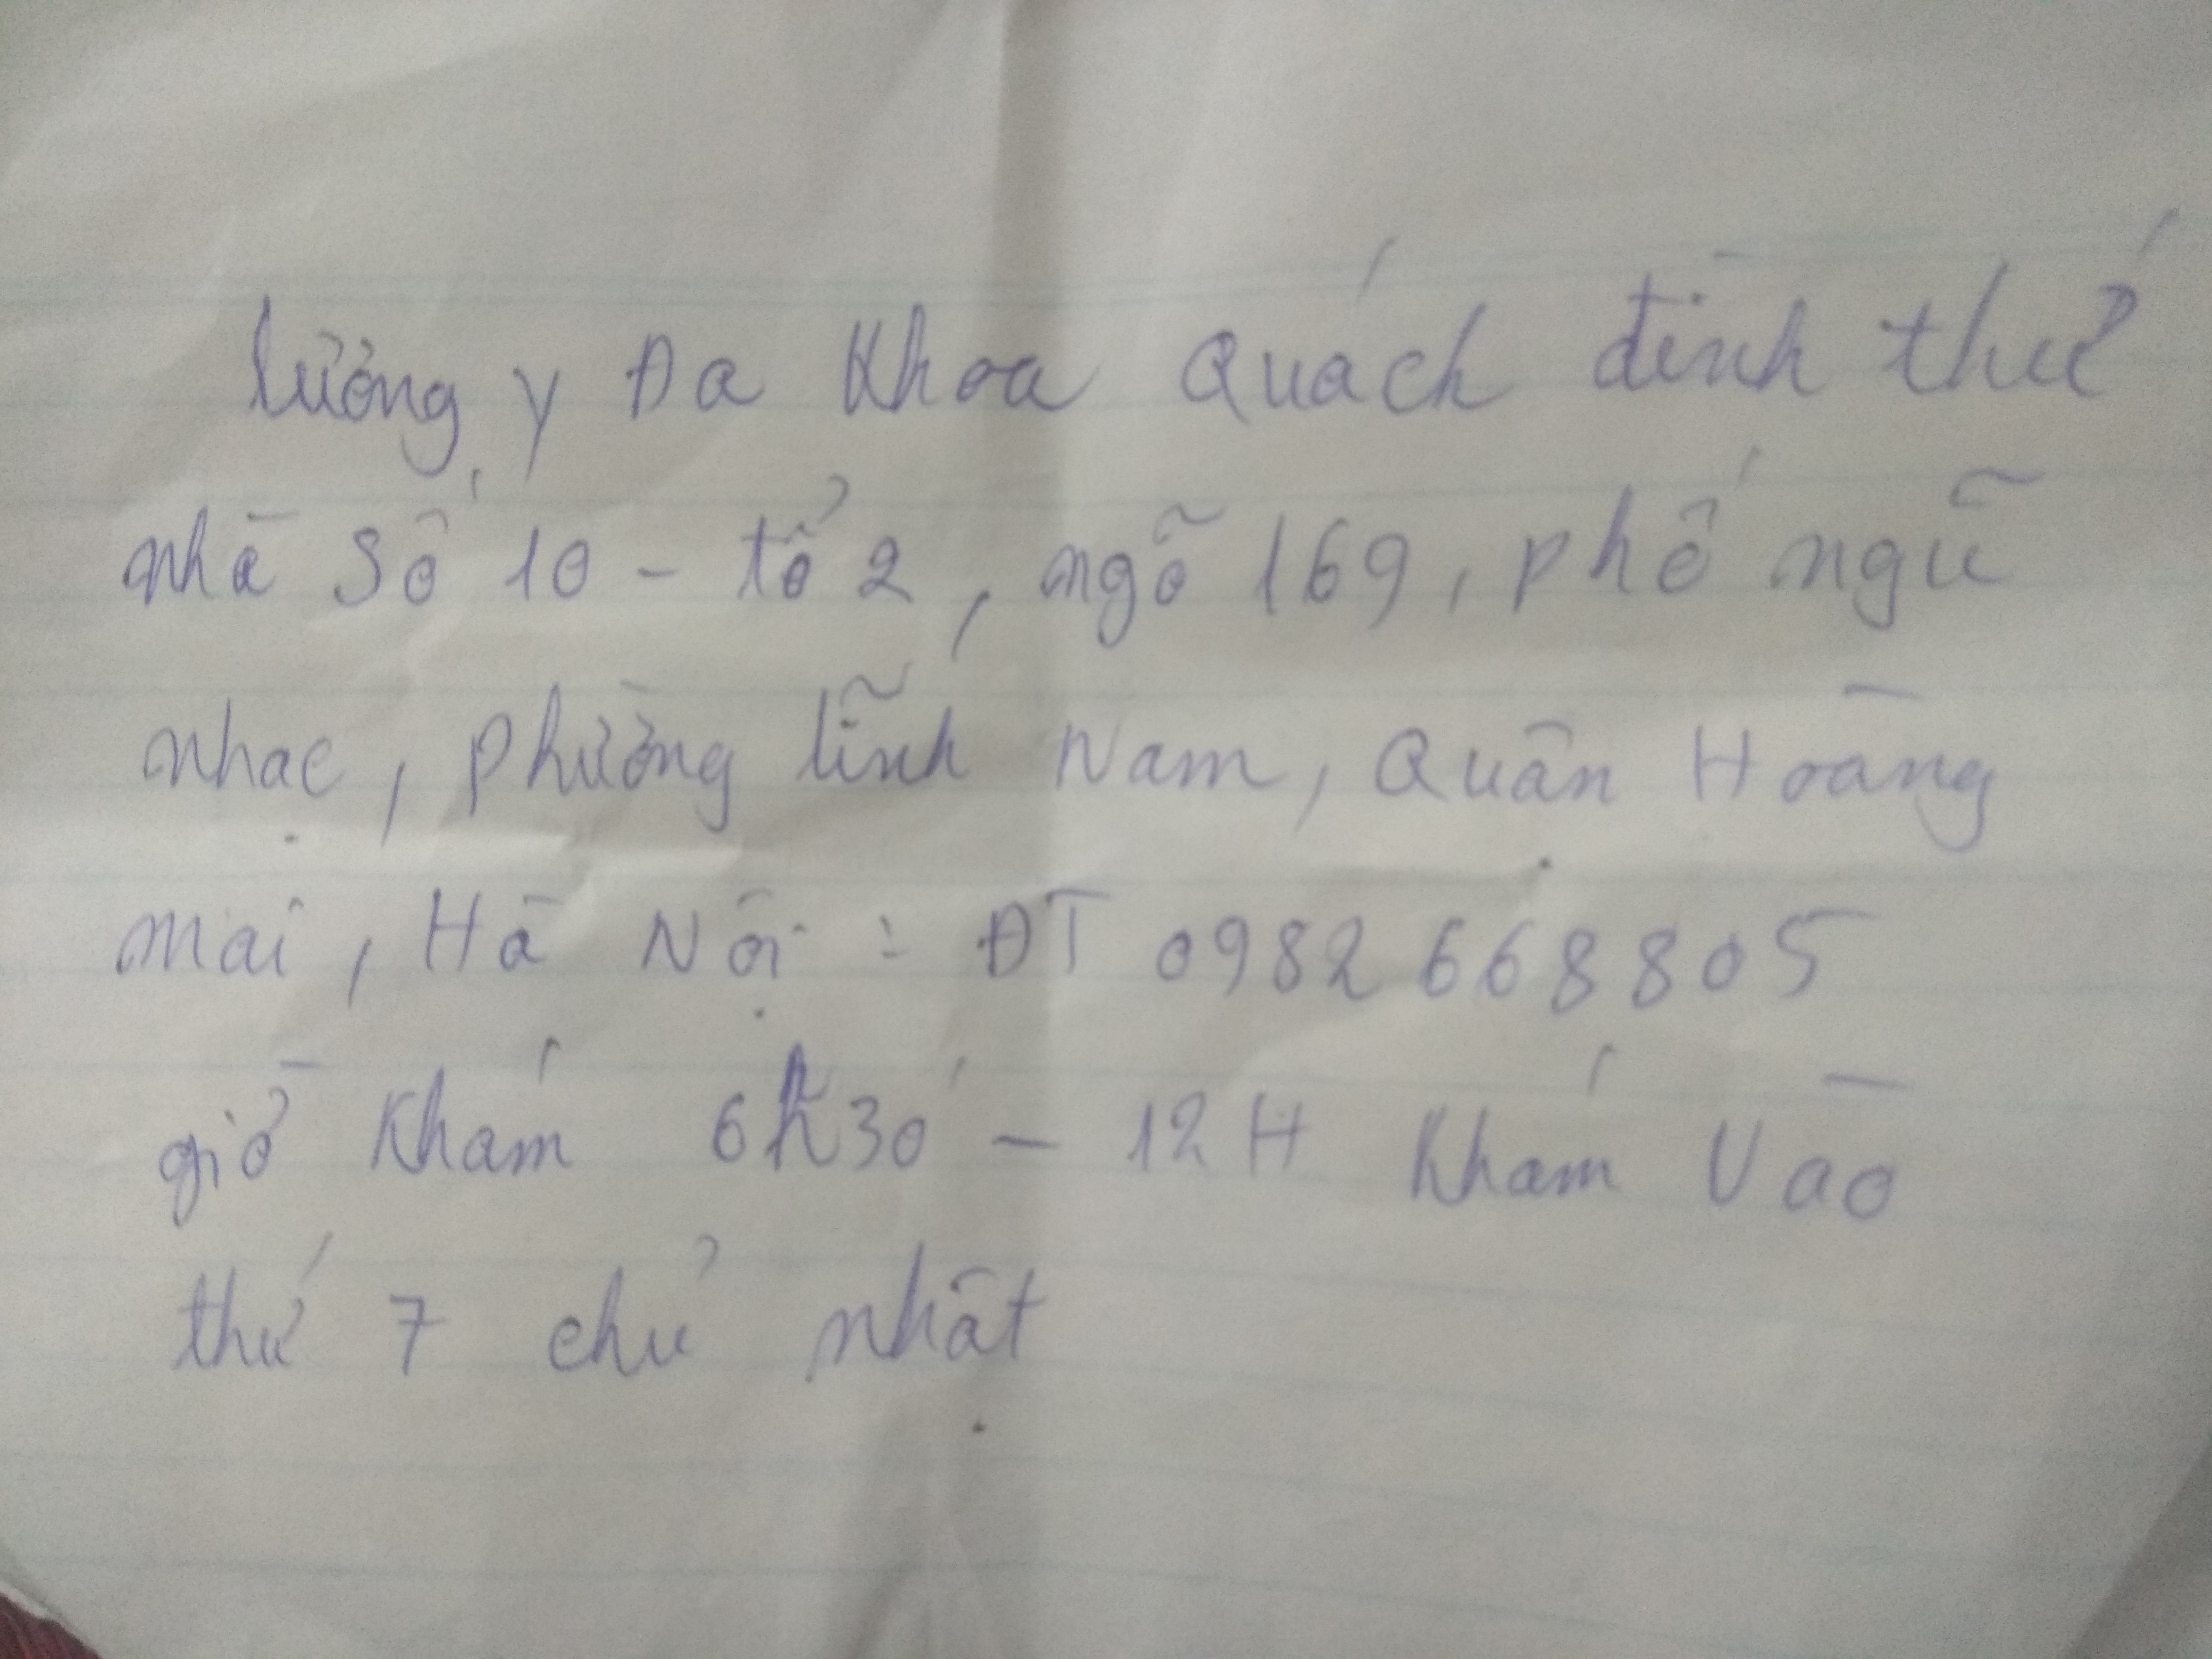 lương y Đa Khoa Quách đình thứ
nhà số 10 - tổ 2, ngõ 169, phố ngũ
nhạc, phường lĩnh Nam, Quận Hoàng
mai, Hà Nội : ĐT 0982668805
giờ khám 6h30' - 12H khám Vào
thứ 7 chủ nhật